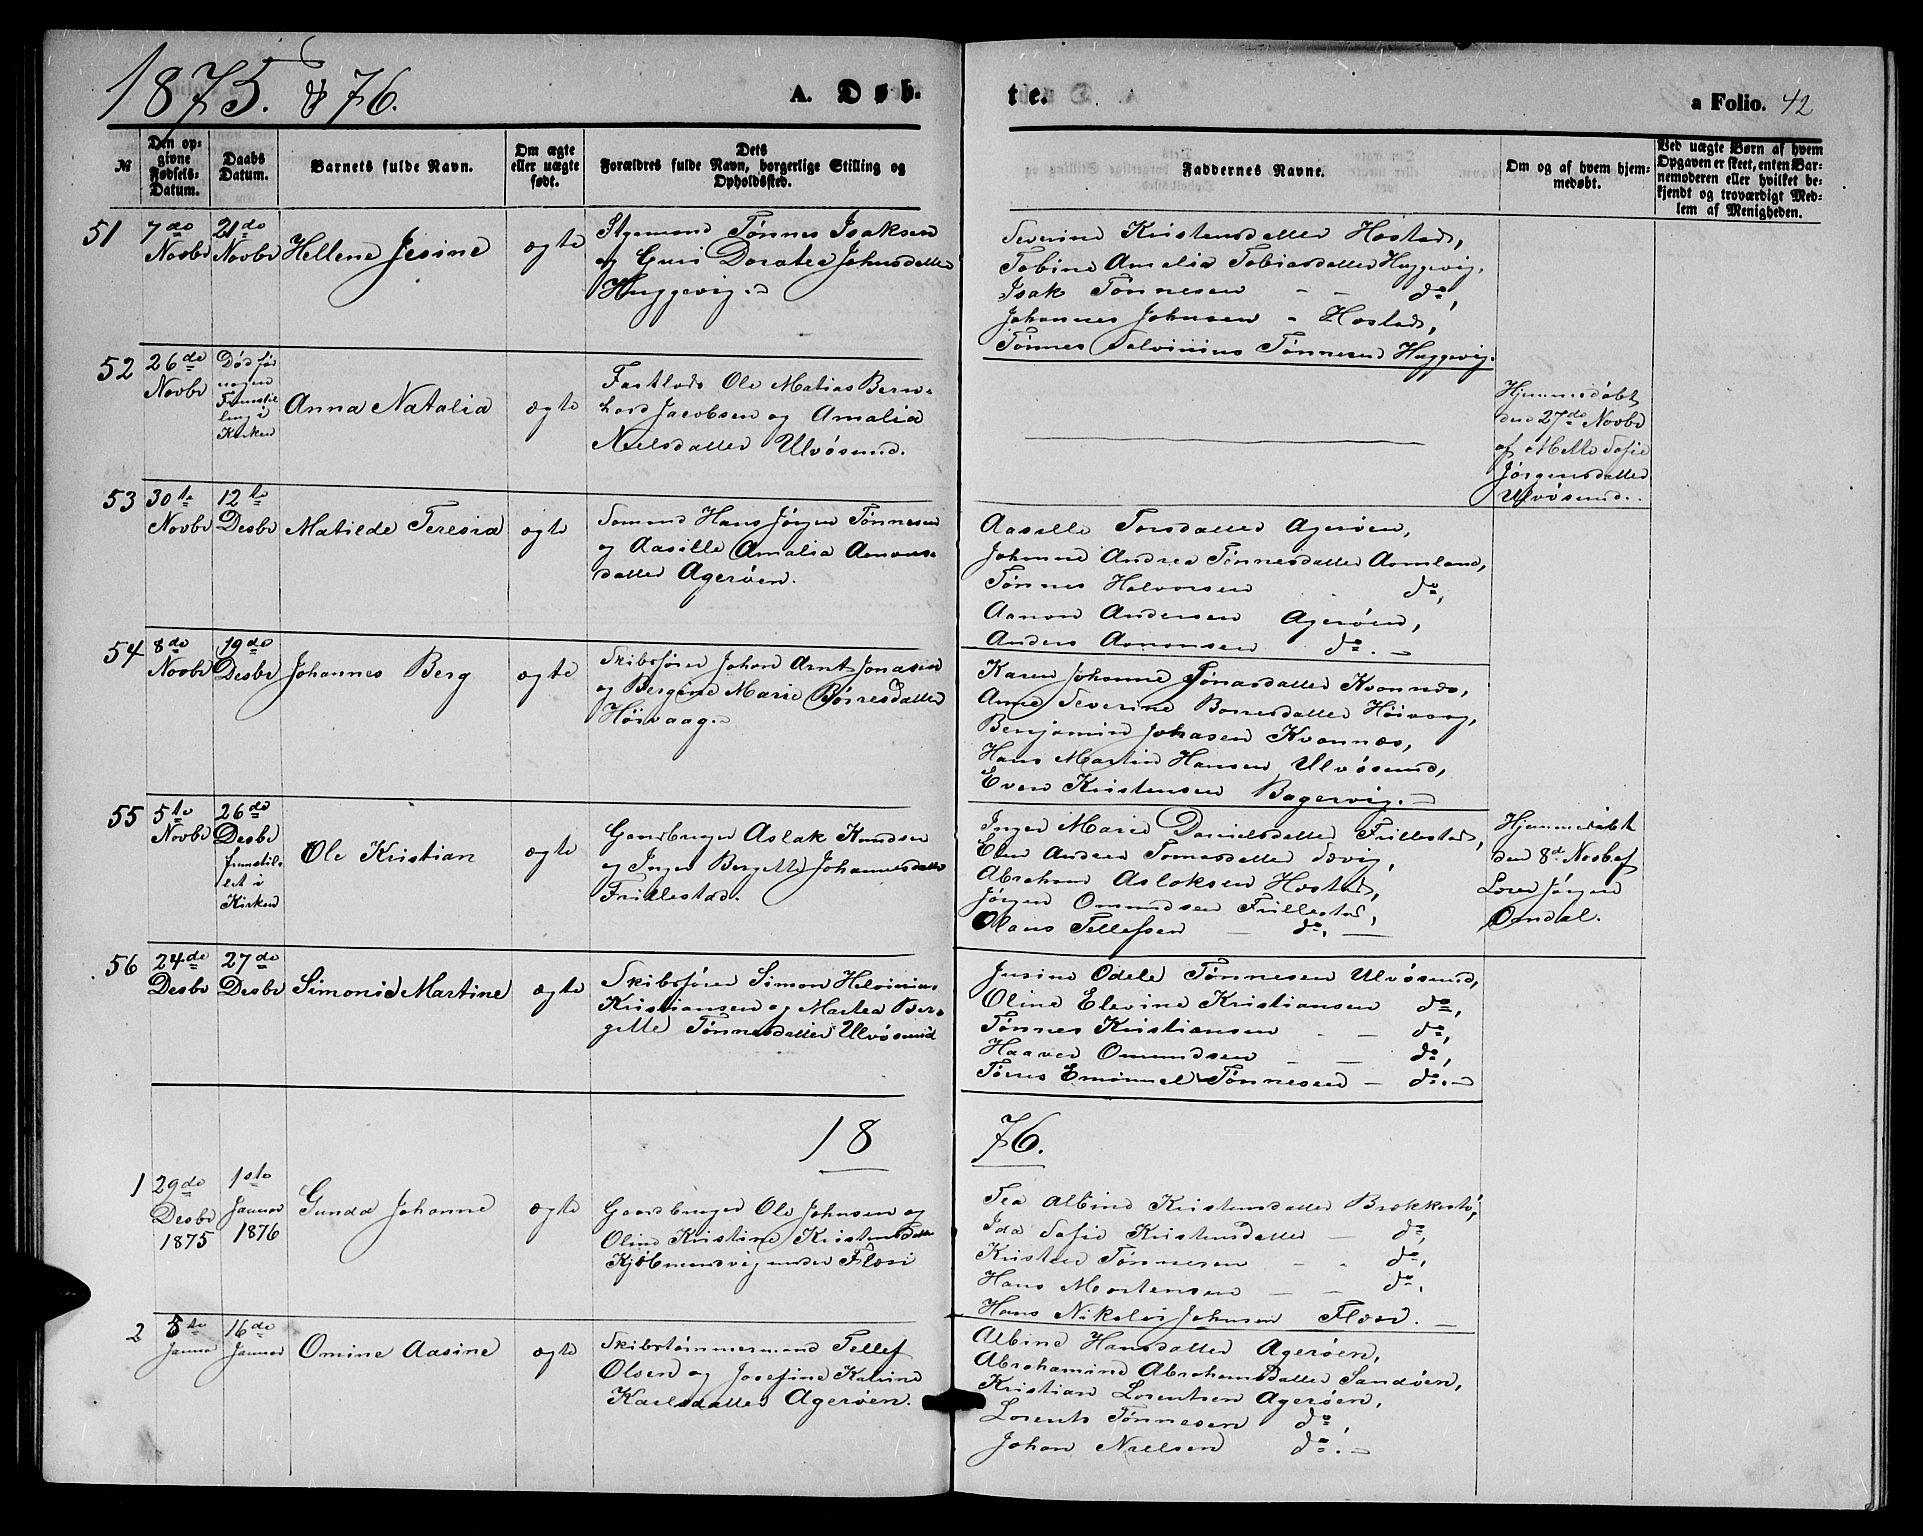 1875. & 76.
A. Døb-
te.
a Folio. 42
№
Den op-
givne
Fødsels-
Datum.
Daabs
Datum.
Barnets fulde Navn.
Om ægte
eller uægte
født.
Dets
Forældres fulde Navn, borgerlige Stilling og
Opholdssted.
Faddernes Navne.
Om og af hvem hjem-
medøbt.
Ved uægte Børn af hvem
Opgaven er skeet, enten Bar-
nemoderen eller hvilket be-
kjendt og troværdigt Med-
lem af Menigheden.
51
7de
Novbr
21de
Novbr
Hellene Jesine
ægte
Styrmand Tønnes Isaksen
og Guri Doratea Johnsdatter
Huggevig.
Severine Kristensdatter Hæstad,
Tobine Amalia Tobiasdatter Huggevig,
Isak Tønnesen - - do,
Johannes Johnsen - Hæstad,
Tønnes Salvinius Tønnesen Huggevig.
52
26de
Novbr
Død før
nogen
Fremstil-
ling i
Kirken
Anna Natalia
ægte
Fastlods Ole Matias Bern-
hard Jacobsen og Amalia
Neelsdatter Ulvøsund.
Hjemmedøbt
den 27de Novbr
af Mette Sofie
Jørgensdatter
Ulvøsund.
53
30te
Novbr
12te
Desbr
Matilde Teresia
ægte
Sømand Hans Jørgen Tønnesen
og Aasille Amalia Aanons-
datter Agerøen.
Aasille Torsdatter Agerøen,
Johanne Andrea Tønnesdatter Aamland,
Tønnes Halvorsen do,
Aanon Andersen Agerøen,
Anders Aanonsen do.
54
8de
Novbr
19de
Desbr
Johannes Berg
ægte
Skibsfører Johan Arnt Jonasen
og Bergine Marie Børresdatter
Høivaag.
Karen Johanne Jonasdatter Kvannæs,
Anne Severine Børresdatter Høivaag,
Benjamin Johasen Kvannæs,
Hans Martin Hansen Ulvøsund,
Even Kristensen Bagervig.
55
5te
Novbr
26de
Desbr
fremstil-
let i
Kirken
Ole Kristian
ægte
Gaardbruger Aslak Knudsen
og Inger Bergette Johannesdatter
Frillestad.
Inger Marie Danielsdatter Frillestad,
Elen Andrea Tomasdatter Sævig,
Abraham Aslaksen Hæstad,
Jørgen Omundsen Frillestad,
Klaus Tellefsen - do,
Hjemmedøbt
den 8d Novbr af
Lærer Jørgen
Omdal.
56
24de
Desbr
27de
Desbr
Simonie Martine
ægte
Skibsfører Simon Helvinius
Kristiansen og Martea Ber-
gette Tønnesdatter Ulvøsund
Jusine Odele Tønnesen Ulvøsund,
Oline Elevine Kristiansen do,
Tønnes Kristiansen - - do,
Haaver Omundsen - - do,
Tønnes Emanuel Tønnesen - do.
18
76.
1
29de
Desbr
1875
1ste
Januar
1876
Gunda Johanne
ægte
Gaardbruger Ole Johnsen og
Oline Kristine Kristensdatter
Kjøbmandsvig under Flæsi
Tea Albine Kristensdatter Brækkestø,
Ida Sofie Kristensdatter - do,
Kristen Tønnesen - - do,
Hans Mortensen - - do,
Hans Nikolai Johnsen Flæsi.
2
5te
Januar
16de
Januar
Omine Aasine
ægte
Skibstømmermand Tellef
Olsen og Josefine Katrine
Karlsdatter Agerøen.
Albine Hansdatter Agerøen,
Abrahamine Abrahamsdatter Sandøen,
Kristian Lorentsen Agerøen,
Lorents Tønnesen do,
Johan Nielsen do.